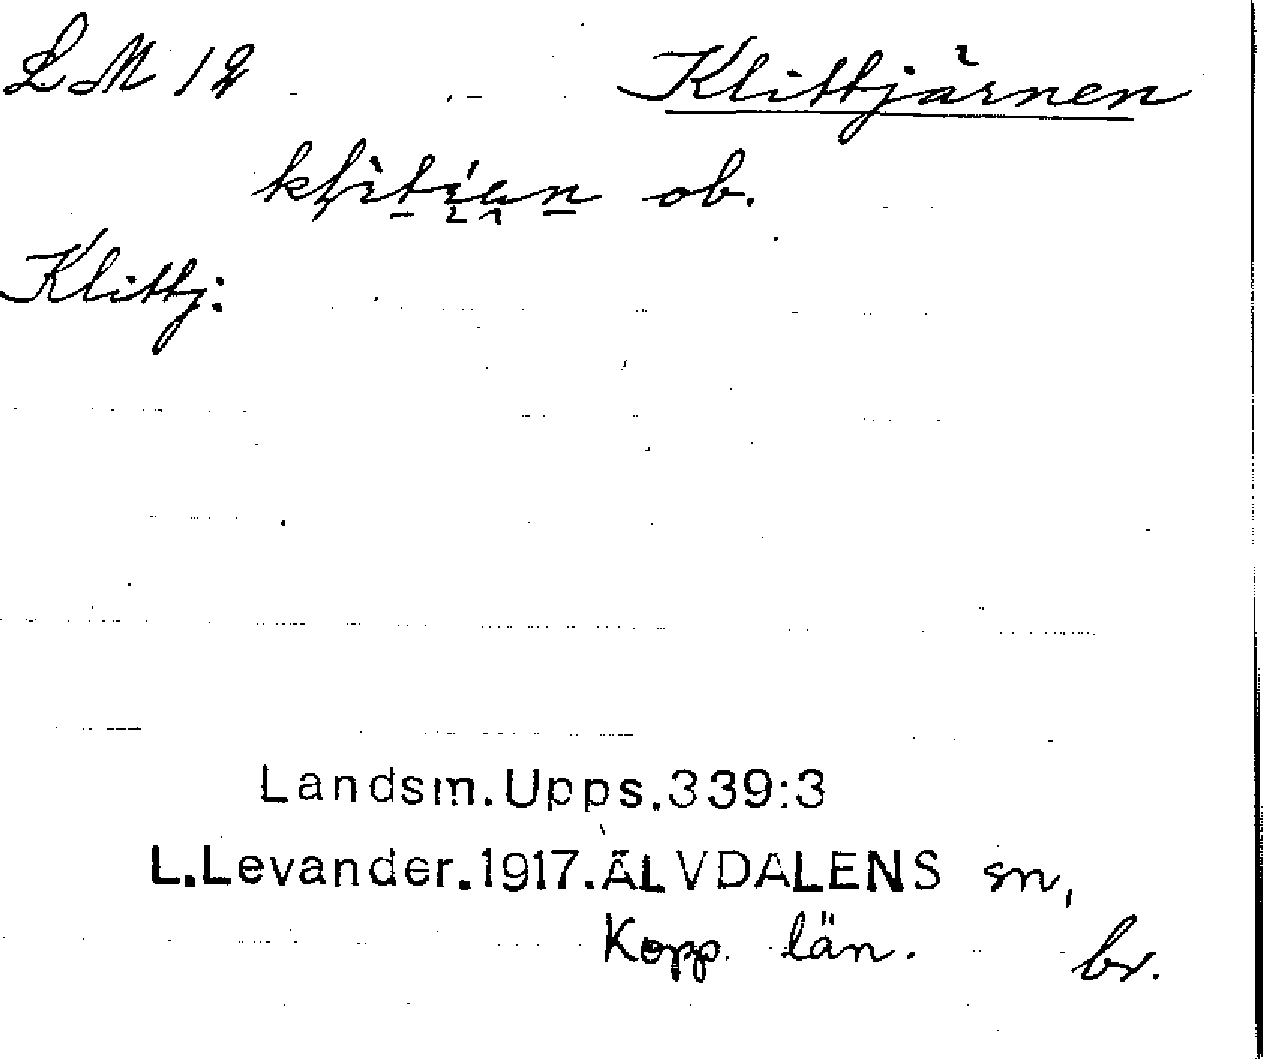 LM 12 Klittjärnen
ob.
Klittj:
Landsm.Upps.339:3
L.Levander.1917.ÄLVDALENS sn,
Kopp. län. br.